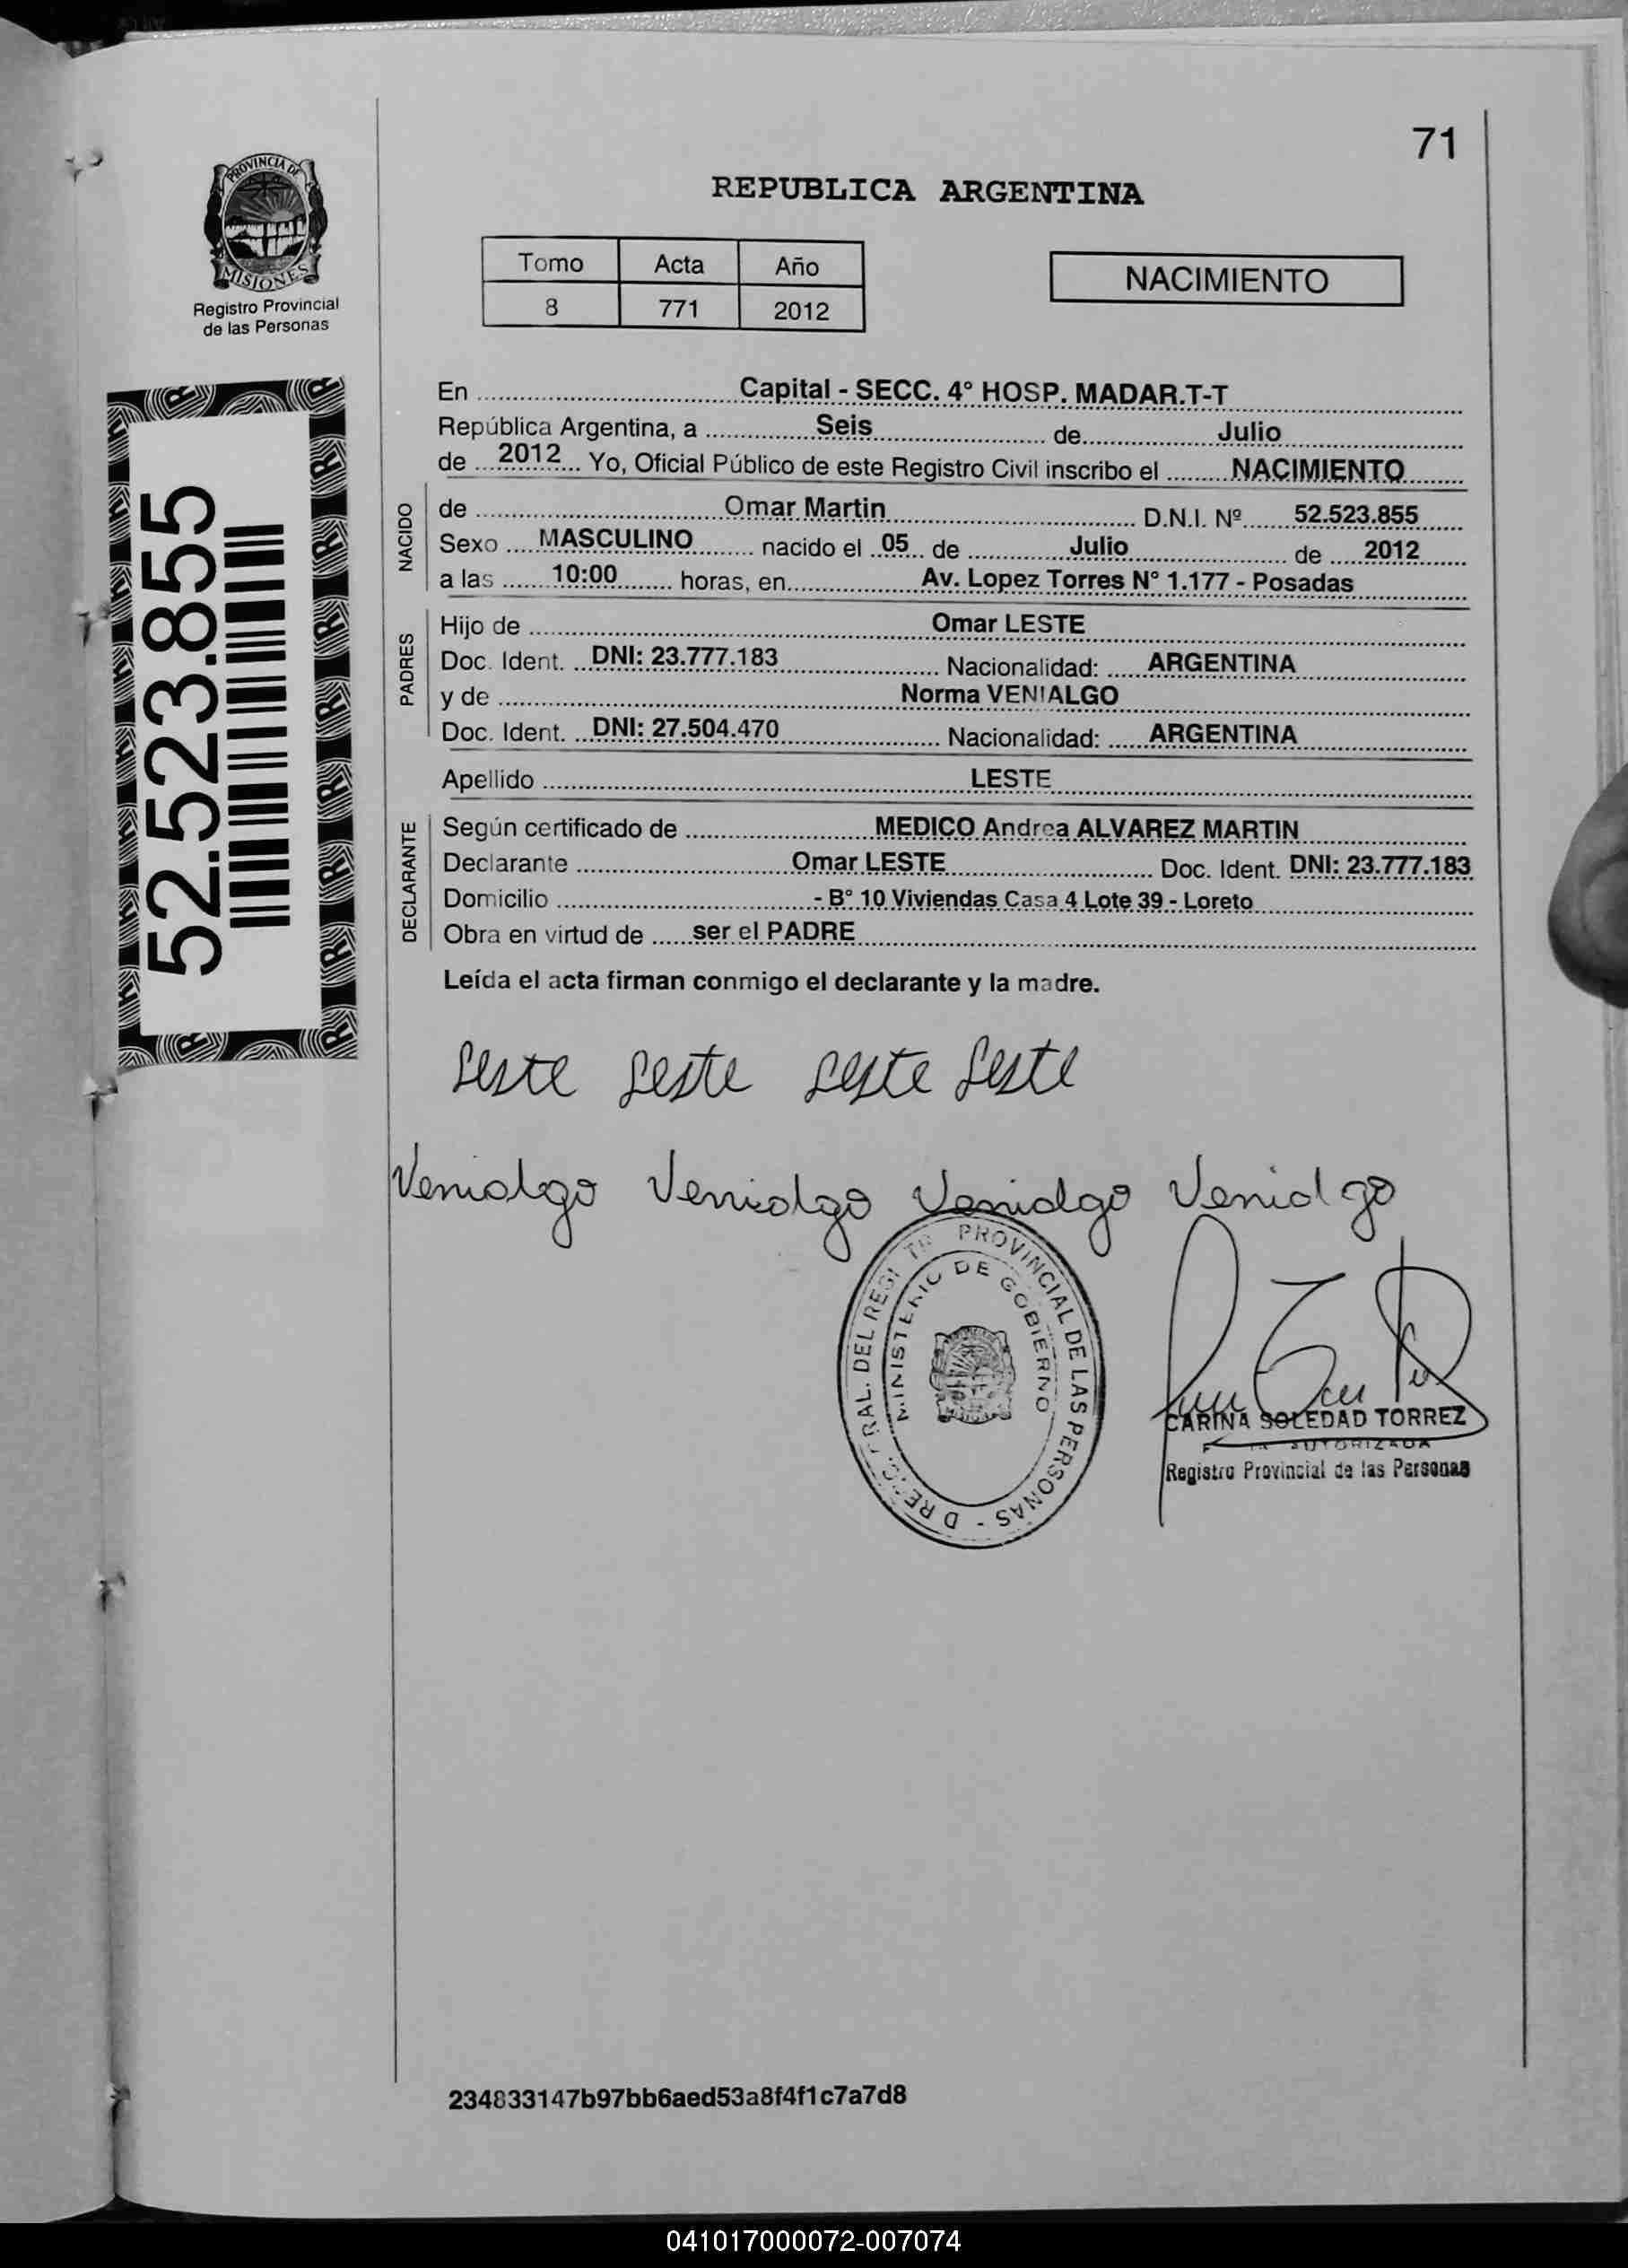 71
PROVINCIA DE
MISIONES
Registro Provincial
de las Personas
REPUBLICA ARGENTINA
Tomo Acta Año
8 771 2012
NACIMIENTO
52.523.855
En Capital - SECC. 4° HOSP. MADAR.T-T
República Argentina, a Seis de Julio
de 2012 Yo, Oficial Público de este Registro Civil inscribo el NACIMIENTO
NACIDO
de Omar Martin D.N.I. Nº 52.523.855
Sexo MASCULINO nacido el 05 de Julio de 2012
a las 10:00 horas, en Av. Lopez Torres N° 1.177 - Posadas
PADRES
Hijo de Omar LESTE
Doc. Ident. DNI: 23.777.183 Nacionalidad: ARGENTINA
y de Norma VENIALGO
Doc. Ident. DNI: 27.504.470 Nacionalidad: ARGENTINA
Apellido LESTE
DECLARANTE
Según certificado de MEDICO Andrea ALVAREZ MARTIN
Declarante Omar LESTE Doc. Ident. DNI: 23.777.183
Domicilio - B° 10 Viviendas Casa 4 Lote 39 - Loreto
Obra en virtud de ser el PADRE
Leída el acta firman conmigo el declarante y la madre.
Leste Leste Leste Leste
Venialgo Venialgo Venialgo Venialgo
PROVINCIAL DE LAS PERSONAS
MINISTERIO DE GOBIERNO
CARINA SOLEDAD TORREZ
AUTORIZADA
Registro Provincial de las Personas
234833147b97bb6aed53a8f4f1c7a7d8
041017000072-007074